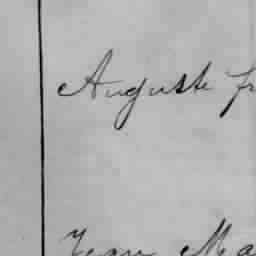 Auguste fr
Jean Ma